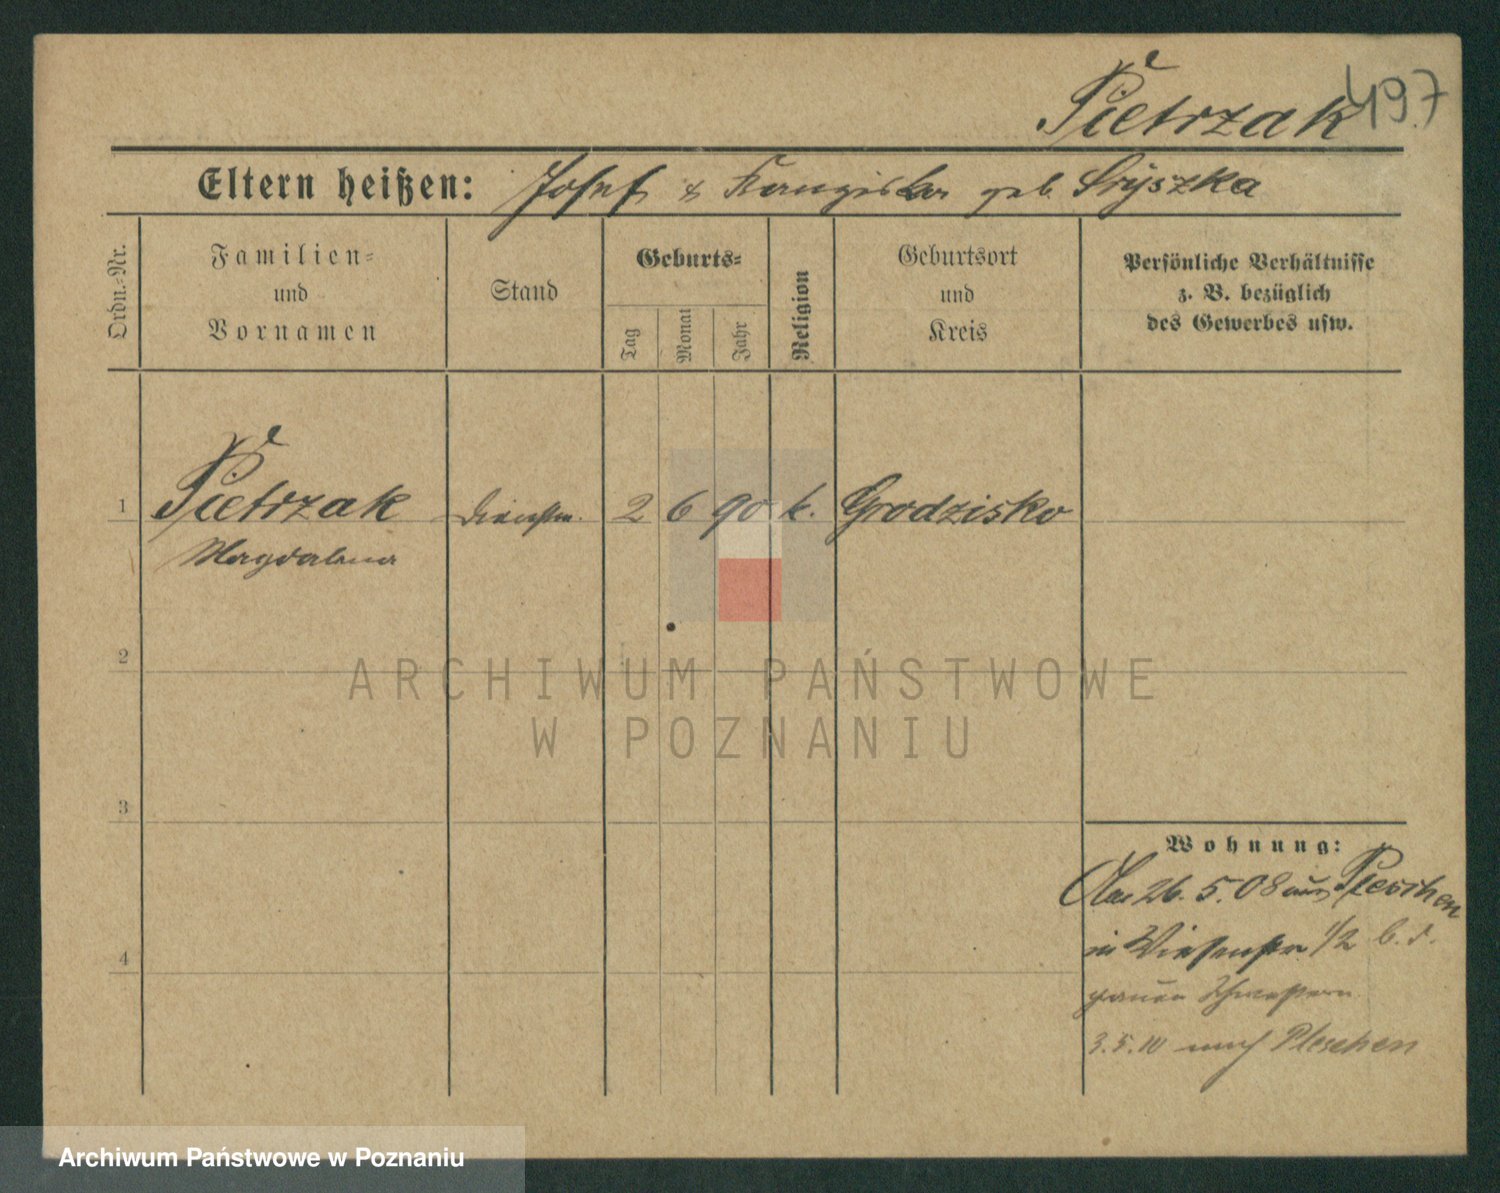 Pietrzak 497
Eltern heißen: Josef & Franziska geb.
Ordn.-Nr.
Familien-
und
Vornamen
Stand
Geburts-
Tag
Monat
Jahr
Religion
Geburtsort
und
Kreis
Persönliche Verhältnisse
z. B. bezüglich
des Gewerbes usw.
1 Pietrzak Dienstm. 2 6 90 k. Grodzisko
Magdalena
2
ARCHIWUM PAŃSTWOWE
W POZNANIU
3
4
Wohnung:
26.5.08 aus Pleschen
in Wiesenstr 1/2 b. d.
grauen Schwestern
3.5.10 nach Pleschen
Archiwum Państwowe w Poznaniu